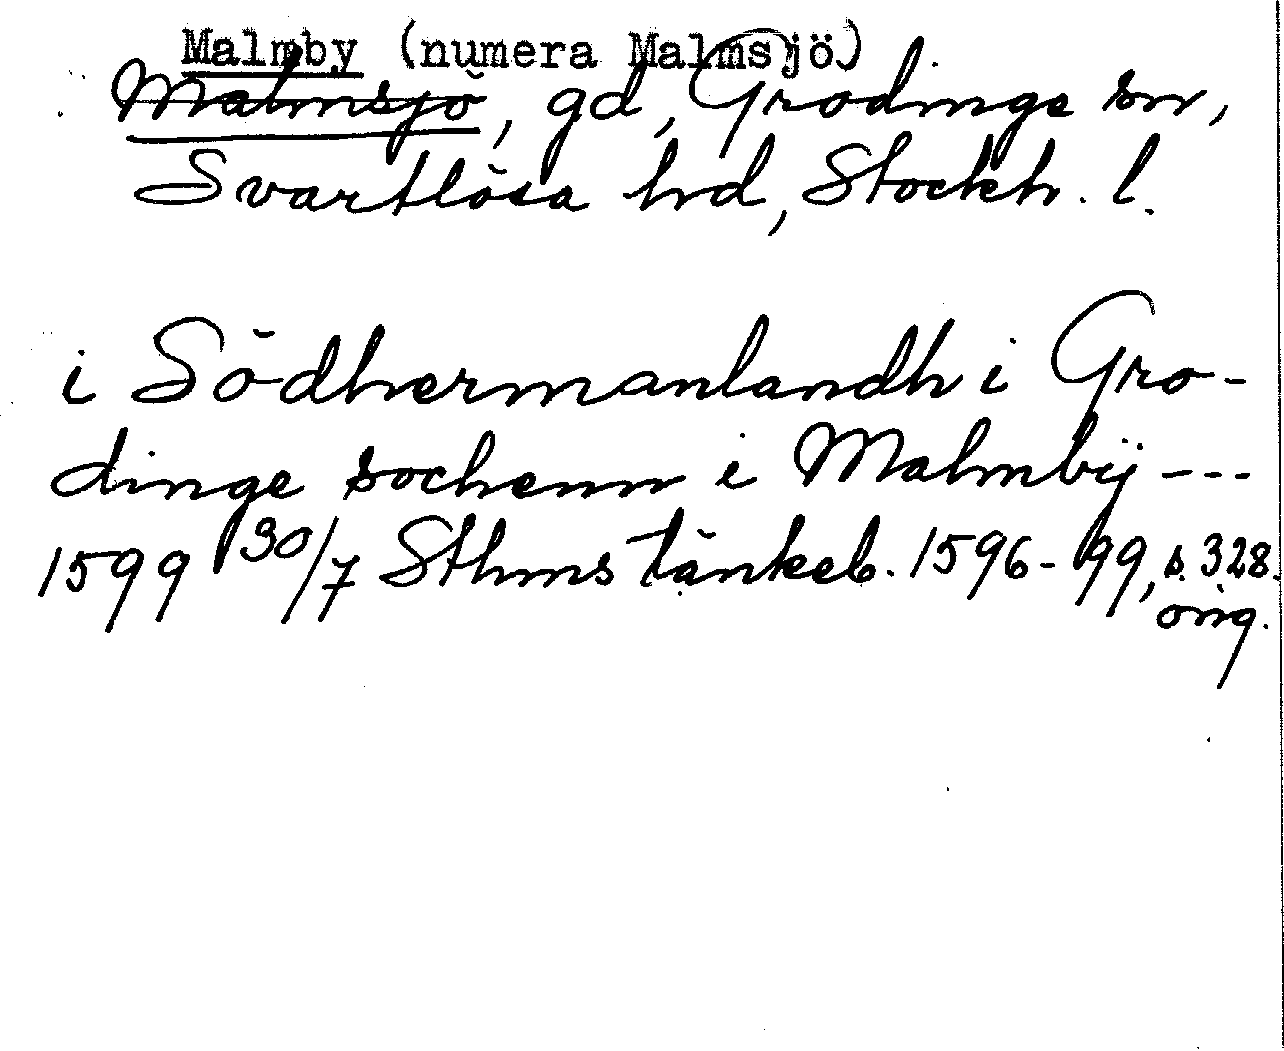 Malmby (numera Malmsjö)
Malmsjö, gd, Grödinge sn,
Svartlösa hd, Stockh. l.
i Södhermanlandh i Gro-
dinge sochenn i Malmbÿ ---
1599 30/7 Sthms tänkeb. 1596-99, s. 328.
orig.